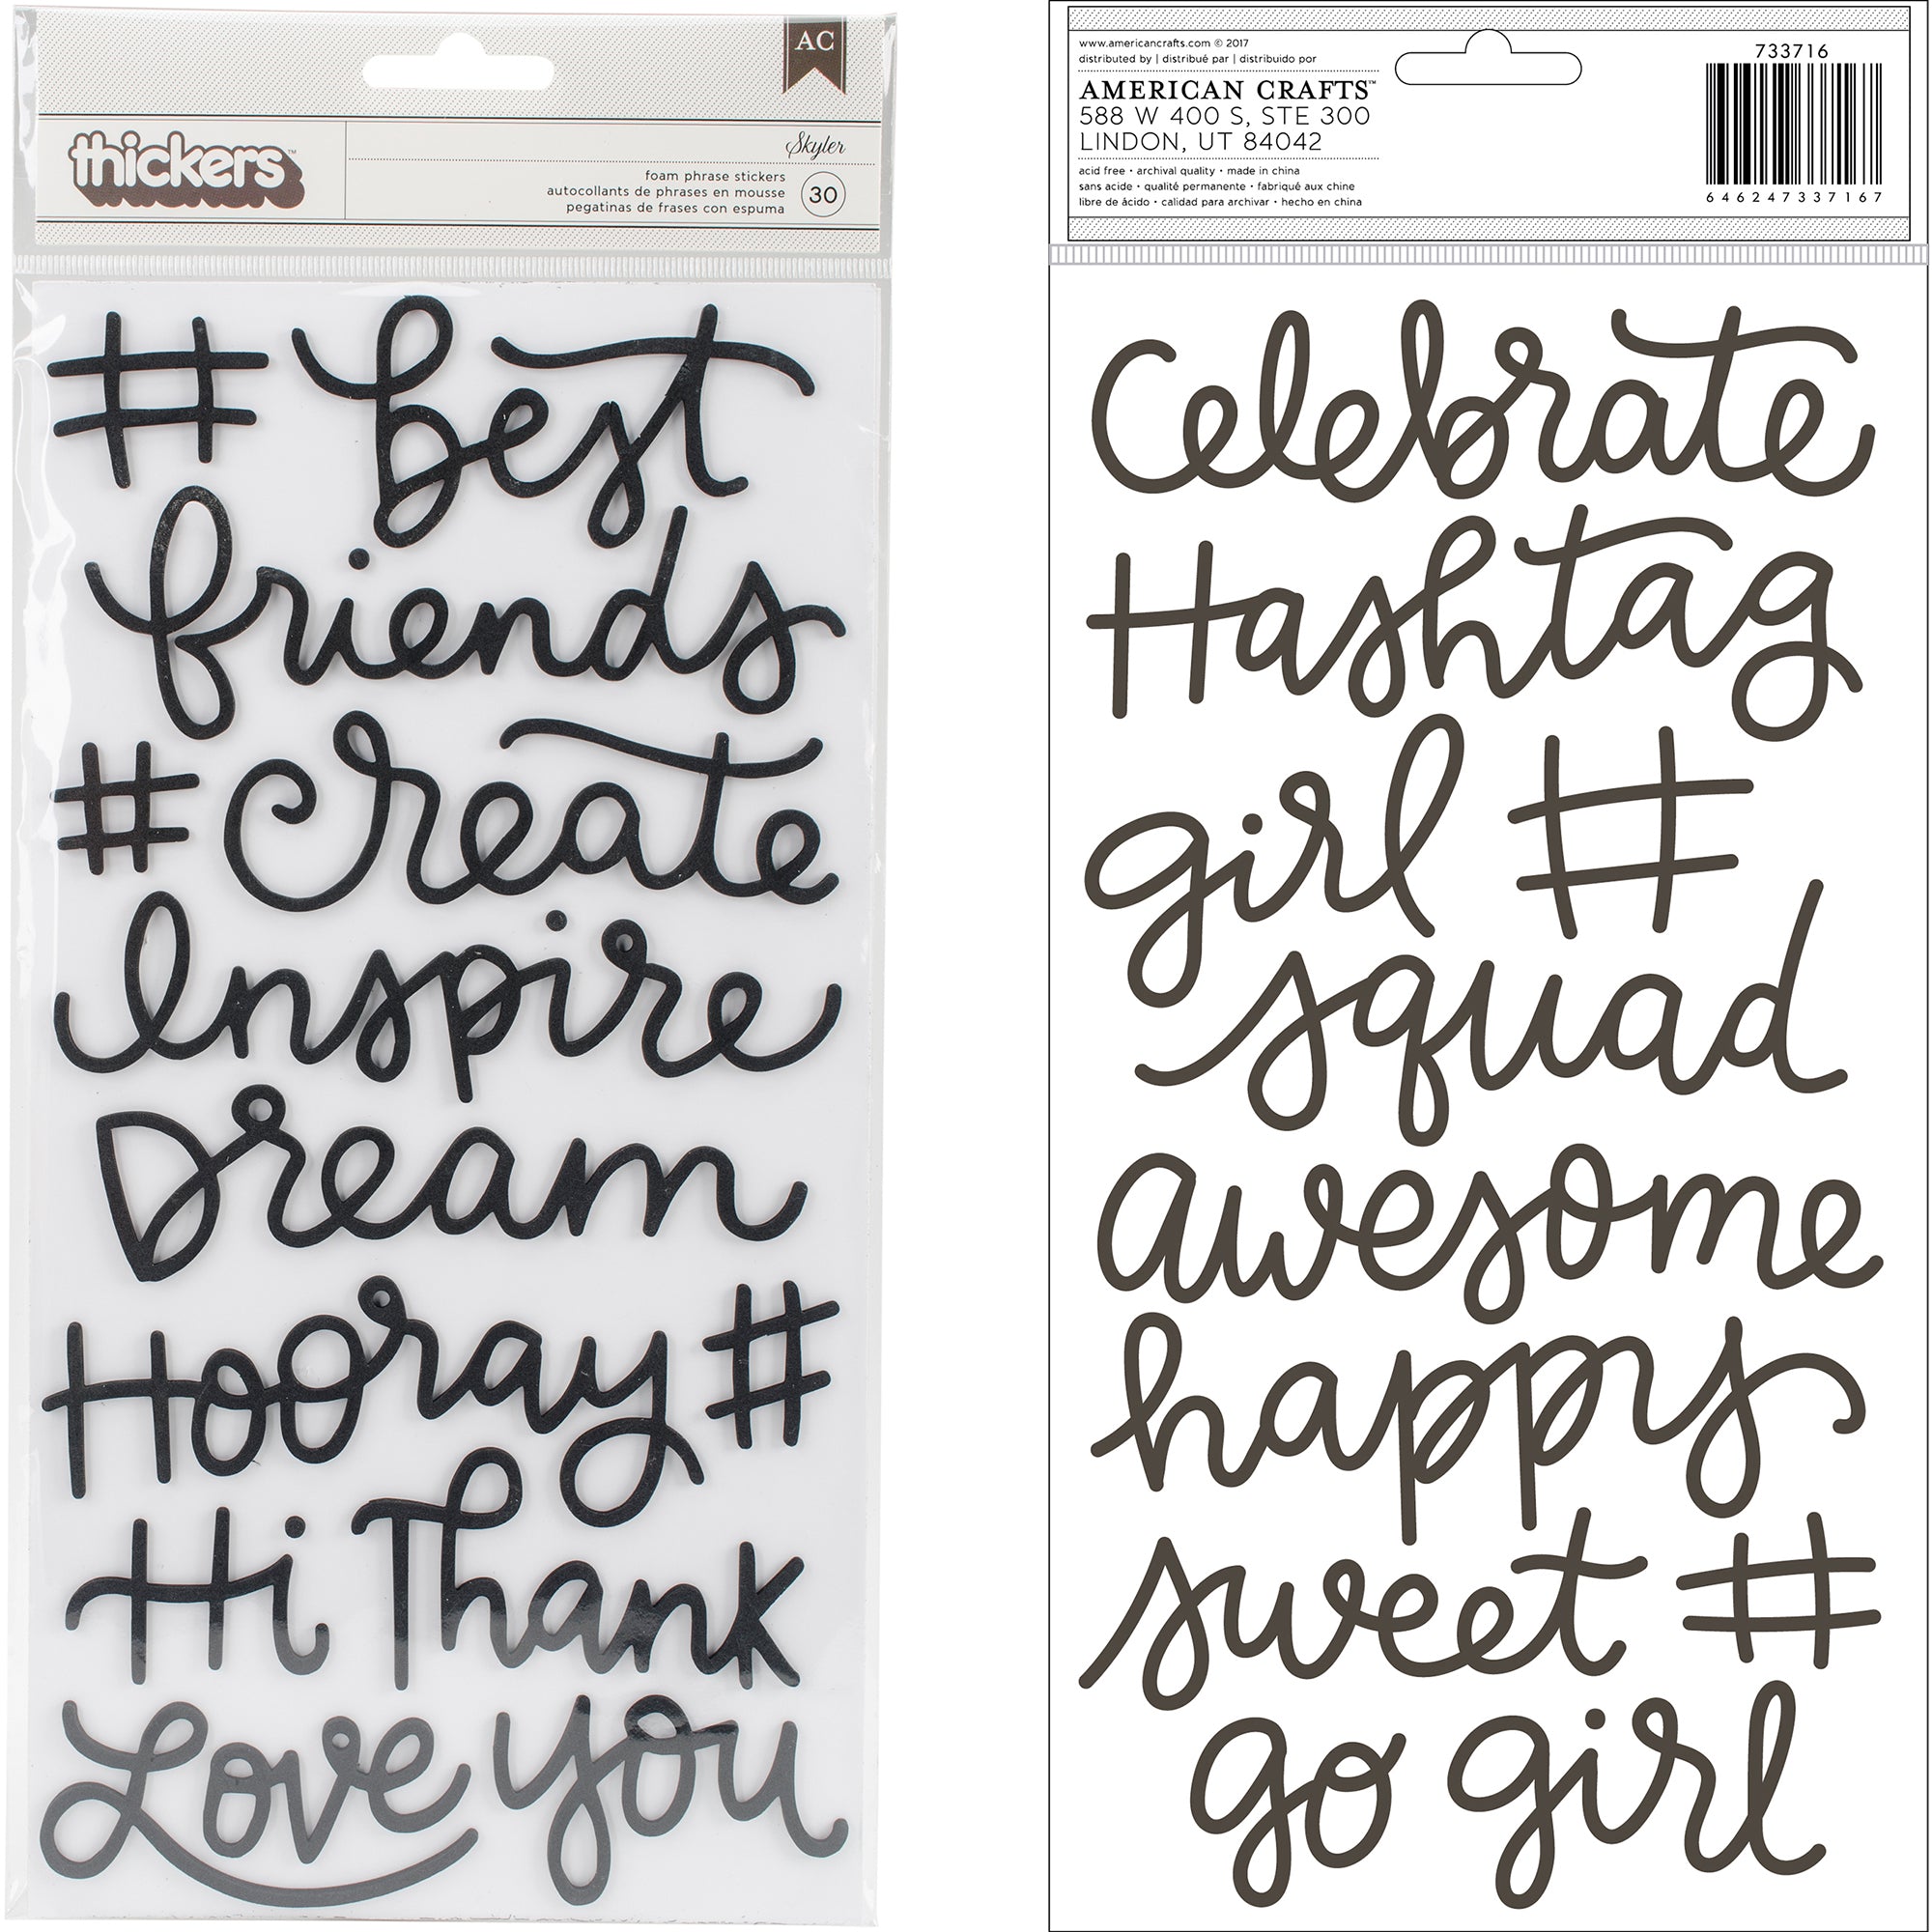 AC
thickers™
Skyler
foam phrase stickers
autocollants de phrases en mousse
pegatinas de frases con espuma
30
# best
friends
# Create
Inspire
Dream
Hooray #
Hi Thank
Love you
www.americancrafts.com © 2017
distributed by | distribué par | distribuido por
AMERICAN CRAFTS™
588 W 400 S, STE 300
LINDON, UT 84042
acid free • archival quality • made in china
sans acide • qualité permanente • fabriqué aux chine
libre de ácido • calidad para archivar • hecho en china
733716
646247337167
Celebrate
Hashtag
girl #
squad
awesome
happy
sweet #
go girl